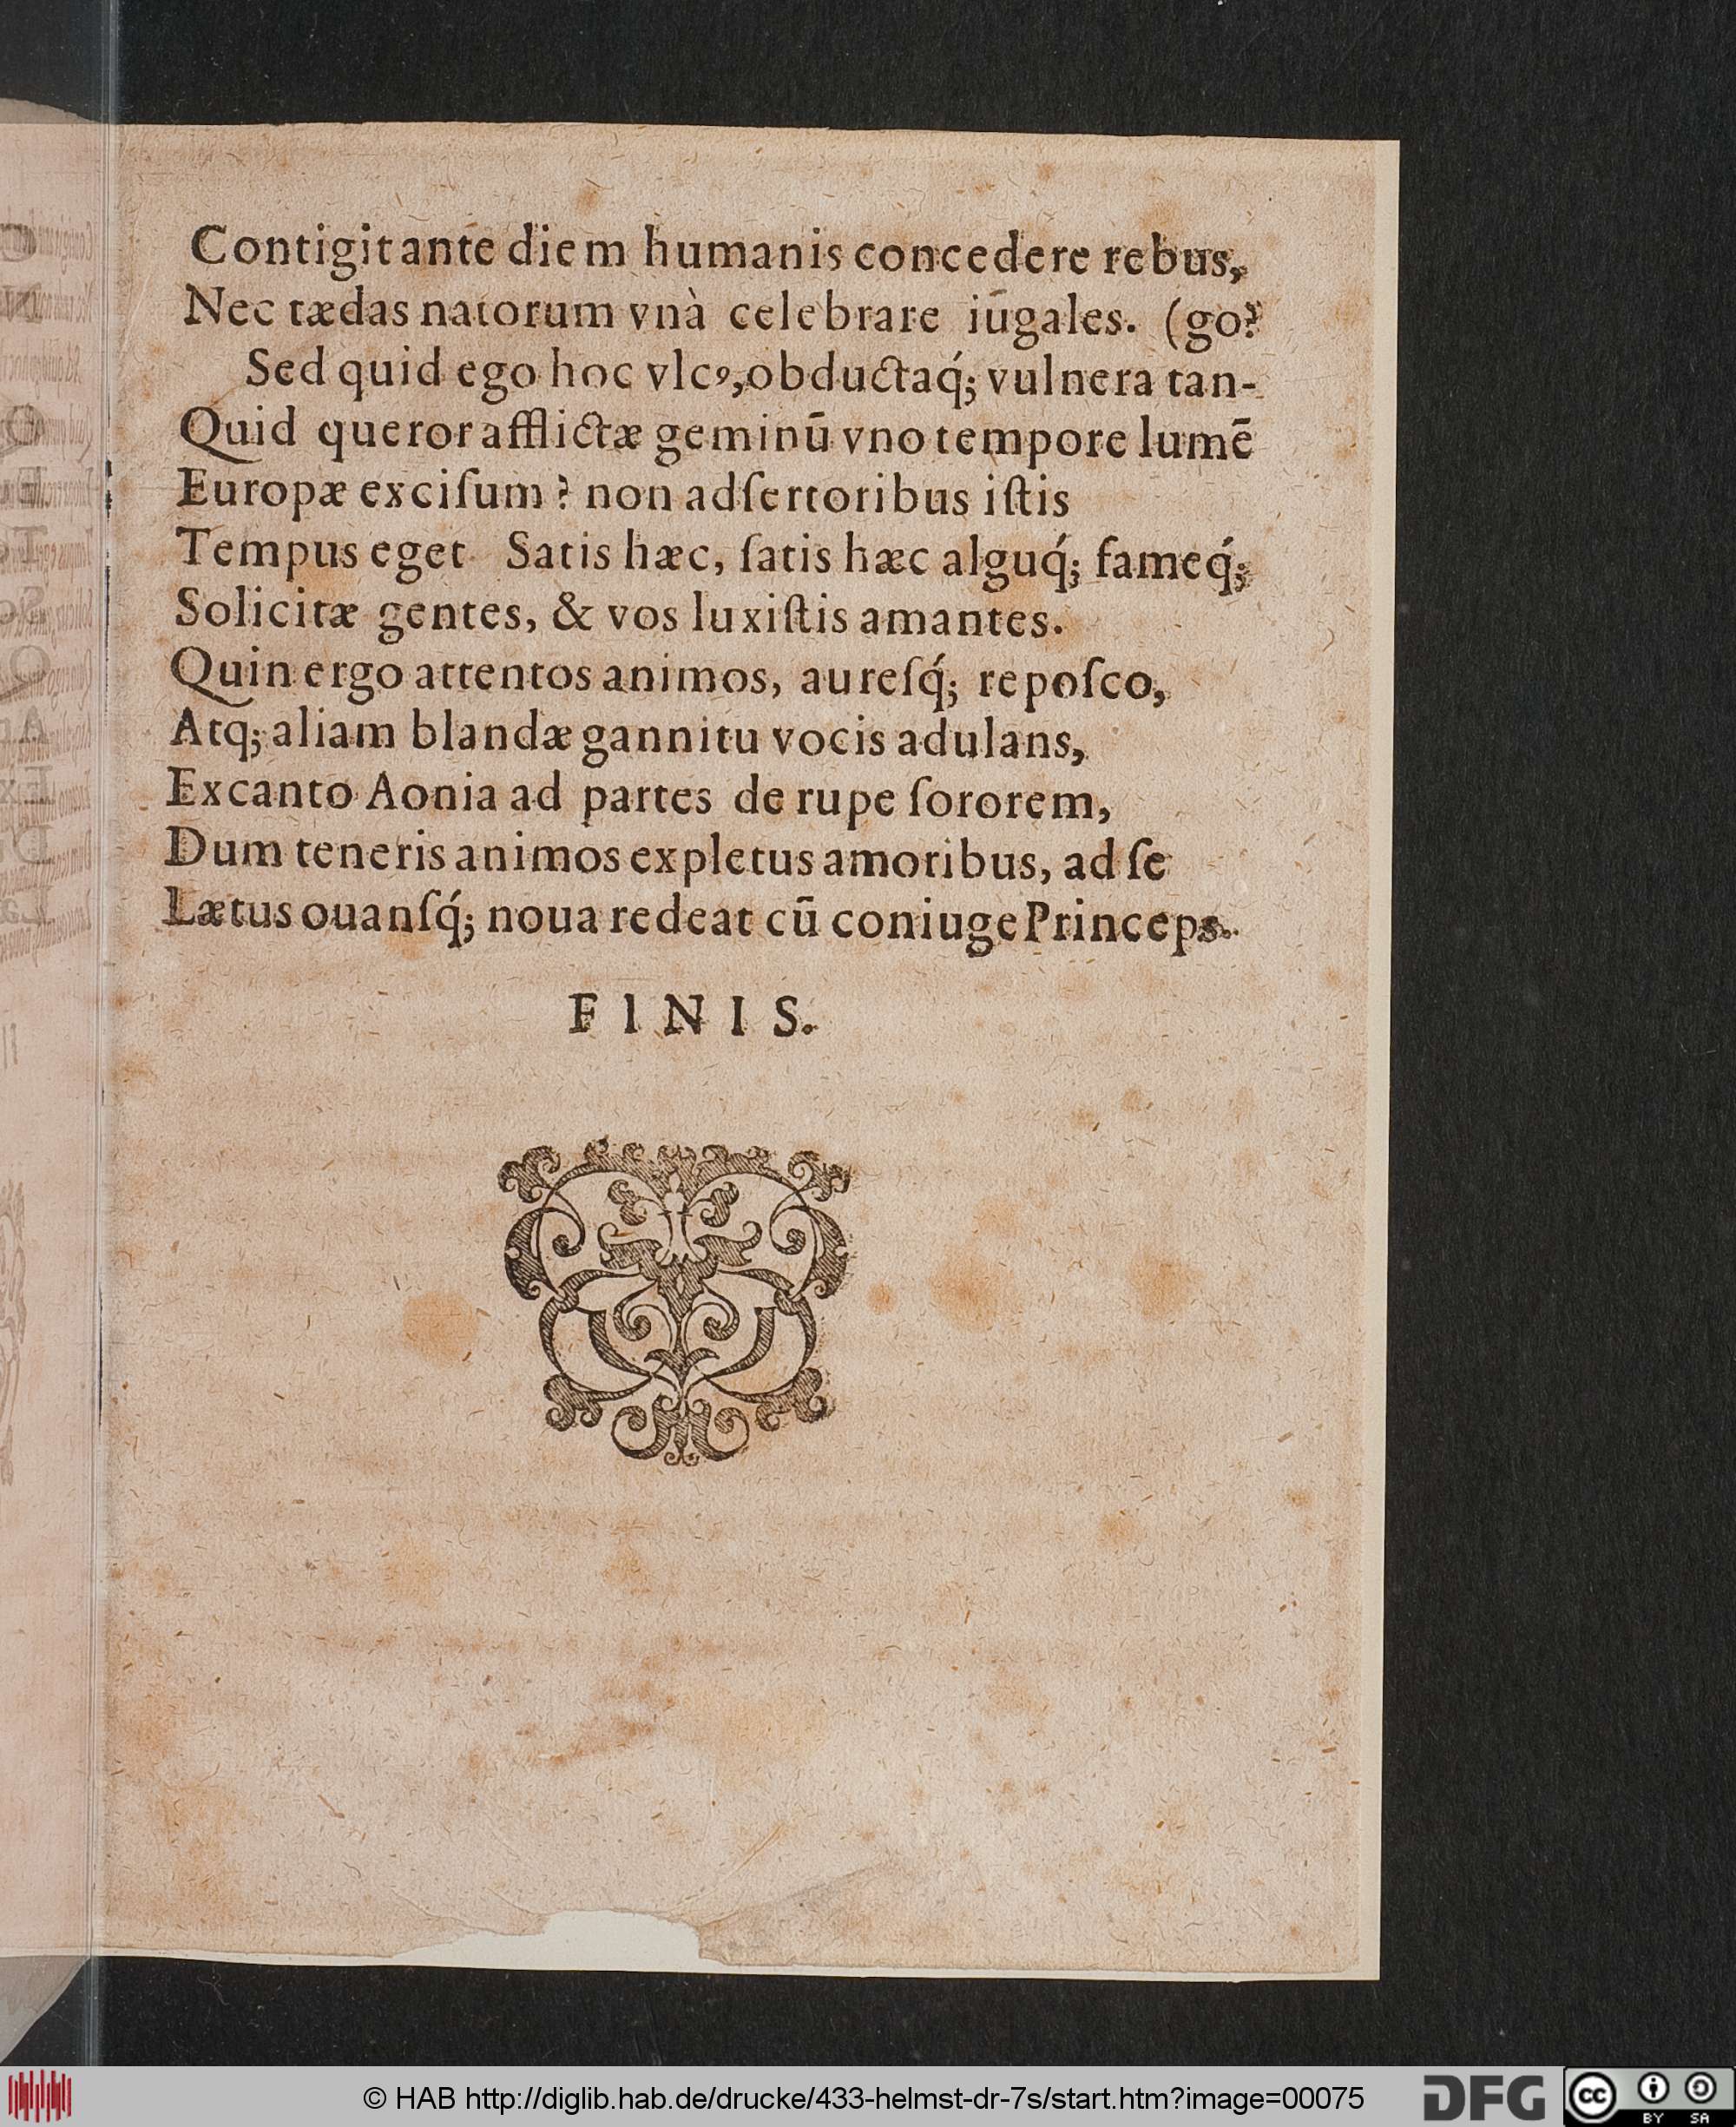 Contigit ante diem humanis concedere rebus,
Nec tædas natorum vnà celebrare iũgales. (go?
Sed quid ego hoc vlcꝰ, obductaq́; vulnera tan-
Quid queror afflictæ geminũ vno tempore lumẽ
Europæ exciſum? non adſertoribus iſtis
Tempus eget Satis hæc, ſatis hæc alguq́; fameq́;
Solicitæ gentes, & vos luxiſtis amantes.
Quin ergo attentos animos, aureſq́; repoſco,
Atq; aliam blandæ gannitu vocis adulans,
Excanto Aonia ad partes de rupe ſororem,
Dum teneris animos expletus amoribus, ad ſe
Lætus ouanſq́; noua redeat cũ coniuge Princeps.
FINIS.
© HAB http://diglib.hab.de/drucke/433-helmst-dr-7s/start.htm?image=00075
DFG
cc BY SA